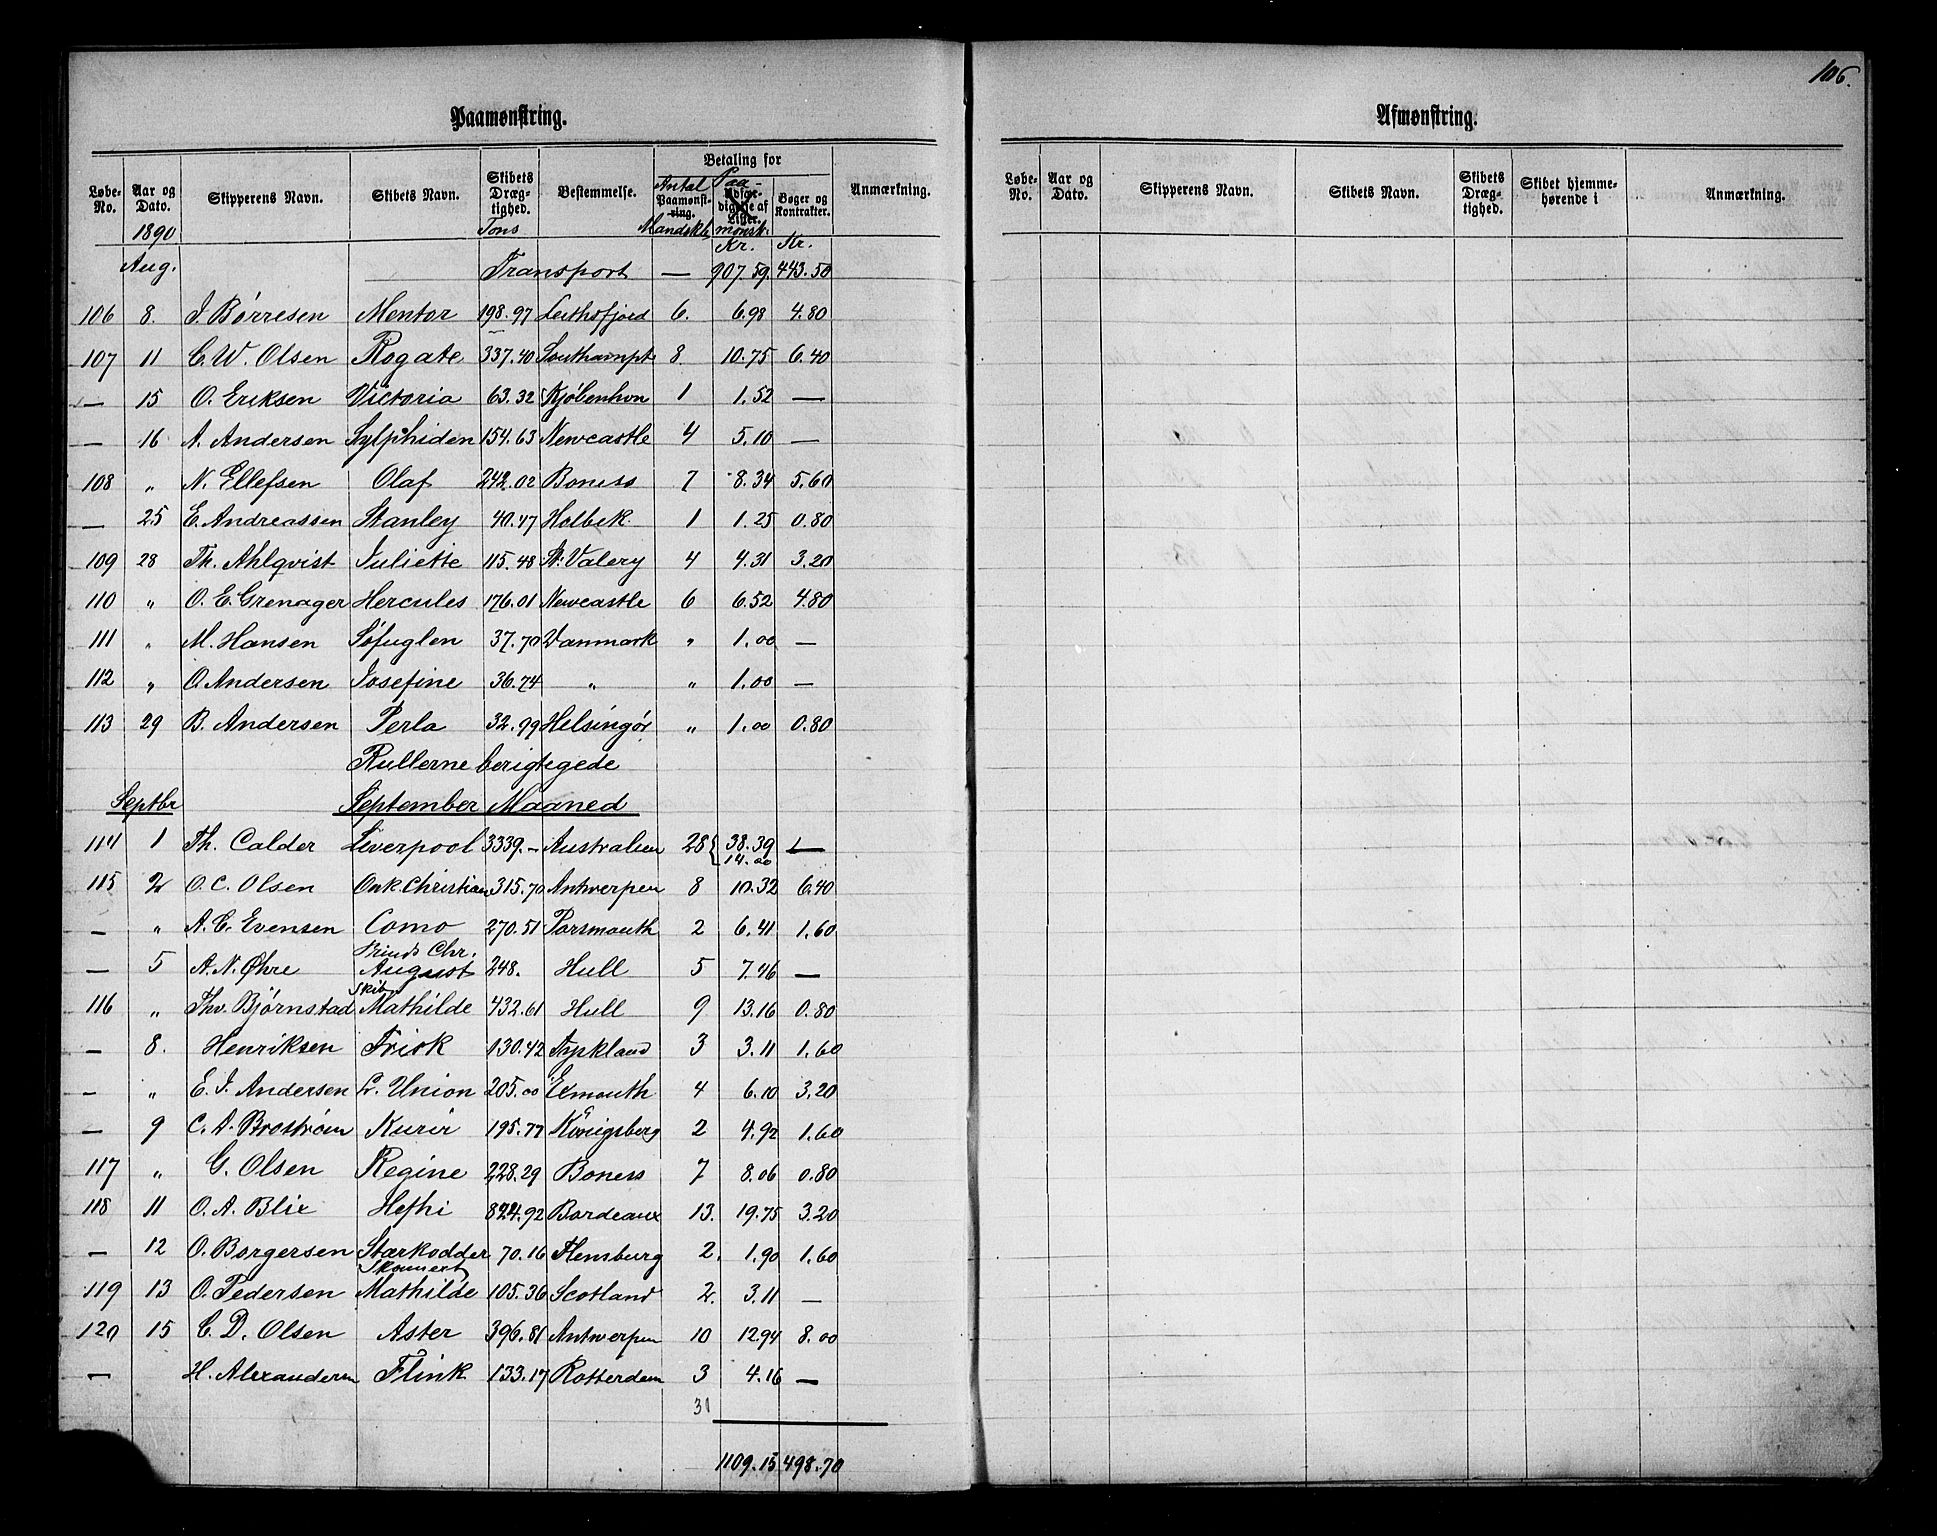 106.
Paamønstring.
Løbe-No. | Aar og Dato. | Skipperens Navn. | Skibets Navn. | Skibets Dræg-tighed. | Bestemmelse. | Betaling for | Anmærkning.
Antal Paamønst-ring. Mandskb | Paa-mønst. | Bøger og Kontrakter.
1890 | Tons | Kr. | Kr.
Aug. | Transport | — | 907.59 | 443.50
106 | 8. | J. Børresen | Mentor | 198.97 | Leithsfjord | 6. | 6.98 | 4.80
107 | 11 | C. W. Olsen | Rogate | 337.40 | Southampt | 8 | 10.75 | 6.40
— | 15 | O. Eriksen | Victoria | 63.32 | Kjøbenhvn | 1 | 1.52 | —
— | 16 | A. Andersen | Sylphiden | 154.63 | Newcastle | 4 | 5.10 | —
108 | " | N. Ellefsen | Olaf | 242.02 | Boness | 7 | 8.34 | 5.60
— | 25 | E. Andreassen | Stanley | 40.47 | Holbek. | 1 | 1.25 | 0.80
109 | 28 | Th. Ahlqvist | Juliette | 115.48 | St. Valery | 4 | 4.31 | 3.20
110 | " | O. E. Grenager | Hercules | 176.01 | Newcastle | 6 | 6.52 | 4.80
111 | " | M. Hansen | Søfuglen | 37.70 | Danmark | " | 1.00 | —
112 | " | O. Andersen | Josefine | 36.74 | " | " | 1.00 | —
113 | 29 | B. Andersen | Perla | 32.99 | Helsingør | " | 1.00 | 0.80
Rullerne berigtegede
Septbr | September Maaned
114 | 1 | Th. Calder | Liverpool | 3339.– | Australien | 28 { | 38.39 | —
14.00
115 | 2 | O. C. Olsen | Onk Christian | 315.70 | Antwerpen | 8 | 10.32 | 6.40
— | " | A. C. Evensen | Como | 270.51 | Porsmouth | 2 | 6.41 | 1.60
— | 5 | A. N. Øhre | Prinds Chr. August | 248. | Hull | 5 | 7.46 | —
116 | " | Thv. Bjørnstad | Skib Mathilde | 432.61 | Hull | 9 | 13.16 | 0.80
— | 8. | Henriksen | Frisk | 130.42 | | 3 | 3.11 | 1.60
— | " | E. J. Andersen | L. Union | 205.00 | Exmouth | 4 | 6.10 | 3.20
— | 9 | C. A. Brostrøm | Kurir | 195.77 | Königsberg | 2 | 4.92 | 1.60
117 | " | G. Olsen | Regine | 228.29 | Boness | 7 | 8.06 | 0.80
118 | 11 | O. A. Blix | Hefhi | 824.92 | Bordeaux | 13. | 19.75 | 3.20
— | 12 | O. Borgersen | Stærkodder | 70.16 | Flensburg | 2. | 1.90 | 1.60
119 | 13 | O. Pedersen | Skonnert Mathilde | 105.36 | Scotland | 2. | 3.11 | —
120 | 15 | C. D. Olsen | Aster | 396.81 | Antwerpen | 10 | 12.94 | 8.00
— | H. Alexandersen | Flink | 133.17 | Rotterdam | 3 | 4.16 | —
31
1109.15 | 498.70
Afmønstring.
Løbe-No. | Aar og Dato. | Skipperens Navn. | Skibets Navn. | Skibets Dræg-tighed. | Skibet hjemme-hørende i | Anmærkning.